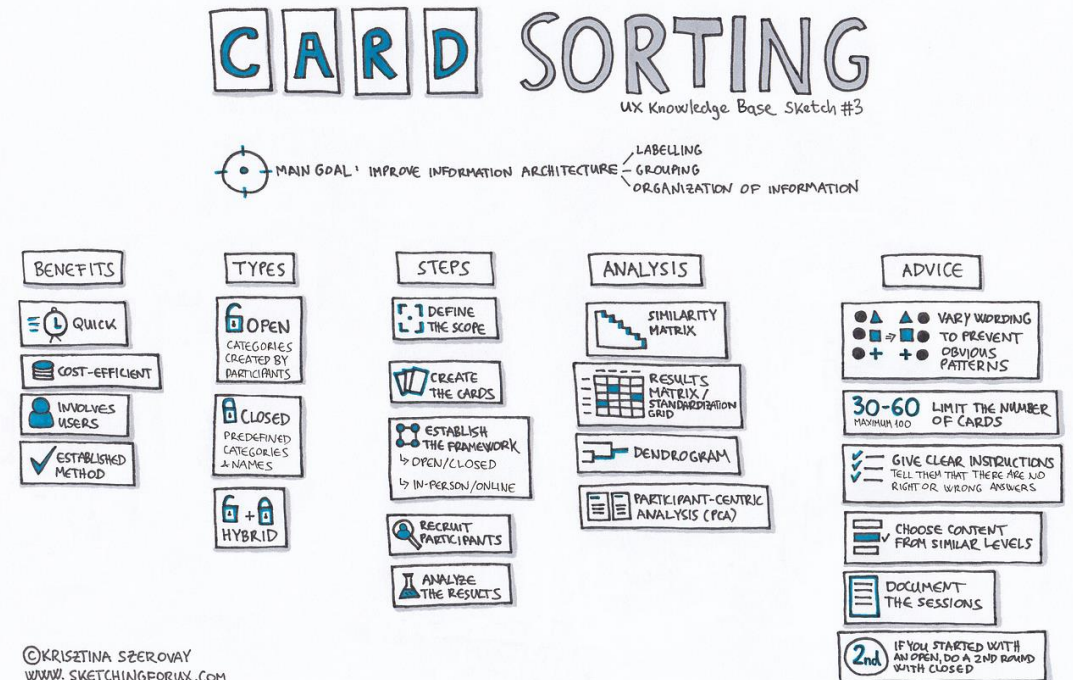 CARD SORTING
UX Knowledge Base Sketch #3
MAIN GOAL: IMPROVE INFORMATION ARCHITECTURE
LABELLING
GROUPING
ORGANIZATION OF INFORMATION
BENEFITS
QUICK
COST-EFFICIENT
INVOLVES
USERS
ESTABLISHED
METHOD
TYPES
OPEN
CATEGORIES
CREATED BY
PARTICIPANTS
CLOSED
PREDEFINED
CATEGORIES
+ NAMES
+
HYBRID
STEPS
DEFINE
THE SCOPE
CREATE
THE CARDS
ESTABLISH
THE FRAMEWORK
↳ OPEN/CLOSED
↳ IN-PERSON/ONLINE
RECRUIT
PARTICIPANTS
ANALYZE
THE RESULTS
ANALYSIS
SIMILARITY
MATRIX
RESULTS
MATRIX/
STANDARDIZATION
GRID
DENDROGRAM
PARTICIPANT-CENTRIC
ANALYSIS (PCA)
ADVICE
VARY WORDING
TO PREVENT
OBVIOUS
PATTERNS
30-60
MAXIMUM 100
LIMIT THE NUMBER
OF CARDS
GIVE CLEAR INSTRUCTIONS
TELL THEM THAT THERE ARE NO
RIGHT OR WRONG ANSWERS
CHOOSE CONTENT
FROM SIMILAR LEVELS
DOCUMENT
THE SESSIONS
2nd
IF YOU STARTED WITH
AN OPEN, DO A 2ND ROUND
WITH CLOSED
©KRISZTINA SZEROVAY
WWW.SKETCHINGFORUX.COM